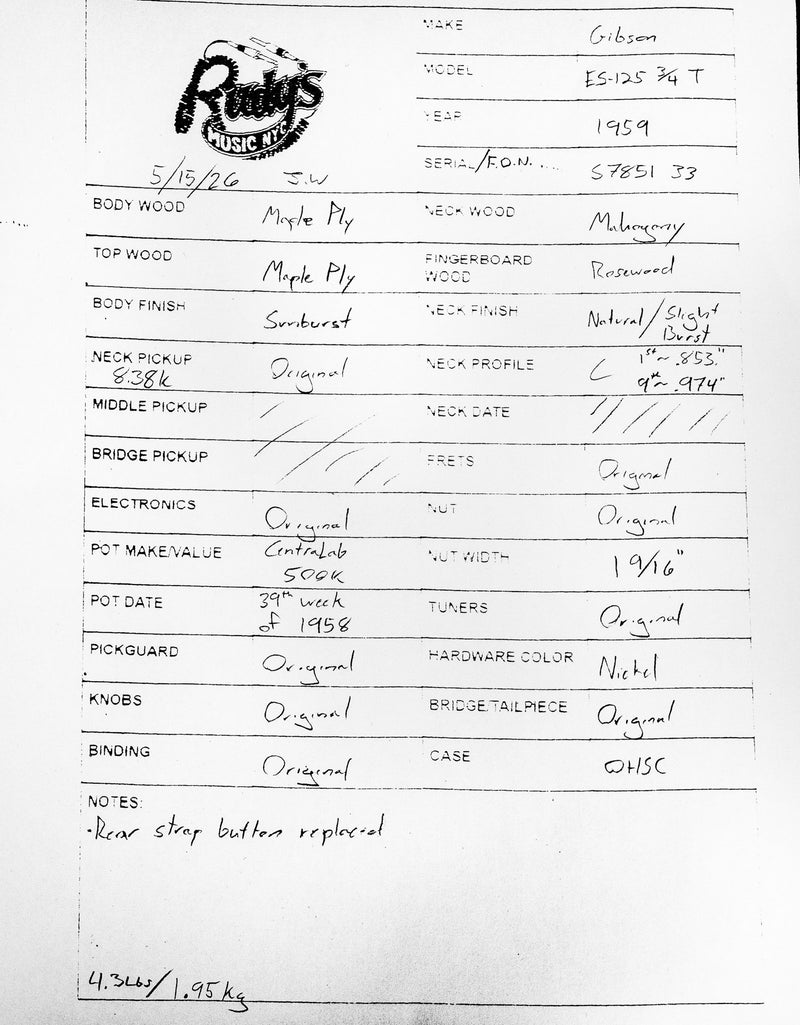 Rudy's
MUSIC NYC
5/15/26 J.W
MAKE Gibson
MODEL ES-125 3/4 T
YEAR 1959
SERIAL/F.O.N. .... S7851 33
BODY WOOD Maple Ply NECK WOOD Mahogany
TOP WOOD Maple Ply FINGERBOARD WOOD Rosewood
BODY FINISH Sunburst NECK FINISH Natural/Slight Burst
NECK PICKUP 8.38k Original NECK PROFILE C 1st ~ .853" 9th ~ .974"
MIDDLE PICKUP NECK DATE
BRIDGE PICKUP FRETS Original
ELECTRONICS Original NUT Original
POT MAKE/VALUE CentraLab 500K NUT WIDTH 1 9/16"
POT DATE 39th week of 1958 TUNERS Original
PICKGUARD Original HARDWARE COLOR Nickel
KNOBS Original BRIDGE/TAILPIECE Original
BINDING Original CASE OHSC
NOTES:
·Rear strap button replaced
4.3Lbs/1.95kg